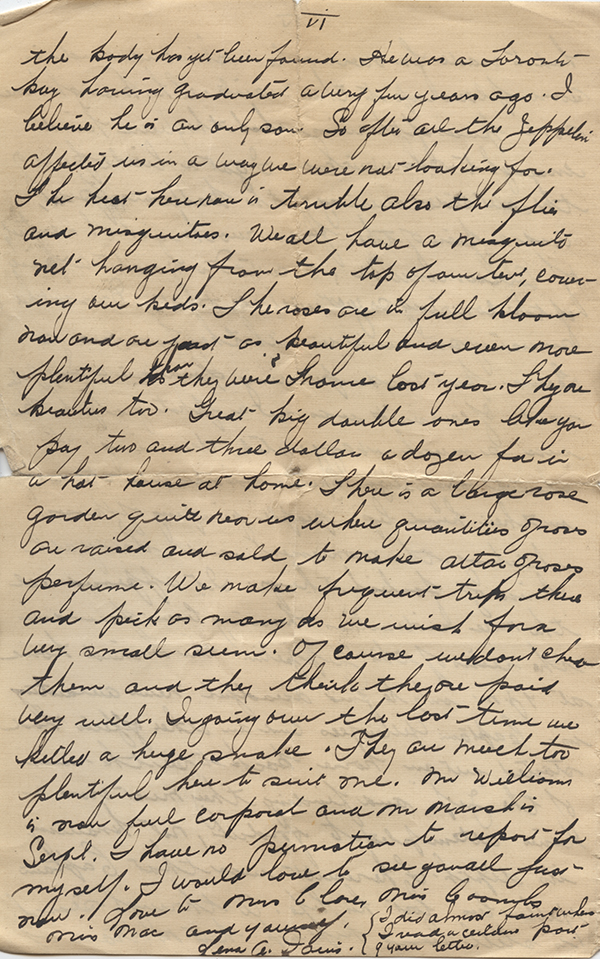 VI
the body has yet been found. He was a Toronto
boy having graduated a very few years ago. I
believe he is an only son. So after all the Zeppelin
affected us in a way we were not looking for.
The heat here now is terrible also the flies
and misquitoes. We all have a misquito
net hanging from the top of our tent, cover-
ing our beds. The roses are in full bloom
now and are just as beautiful and even more
plentiful than they were I home last year. They are
beauties too. Great big double ones like you
pay two and three dollars a dozen for in
a hot house at home. There is a large rose
garden quite near us where quantities of roses
are raised and sold to make attar of roses
perfume. We make frequent trips there
and pick as many as we wish for a
very small sum. Of course we don't cheat
them and they think they are paid
very well. In going over the last time we
killed a huge snake. They are much too
plentiful here to suit me. Mr Williams
is now full corporal and Mr Marsh is
Sergt. I have no promotion to report for
myself. I would love to see you all just
now. Love to Mrs Miss Coombs
Miss Mac and yourself.
Lena A. Davis.
I did almost faint when
I read a certain part
of your letter.